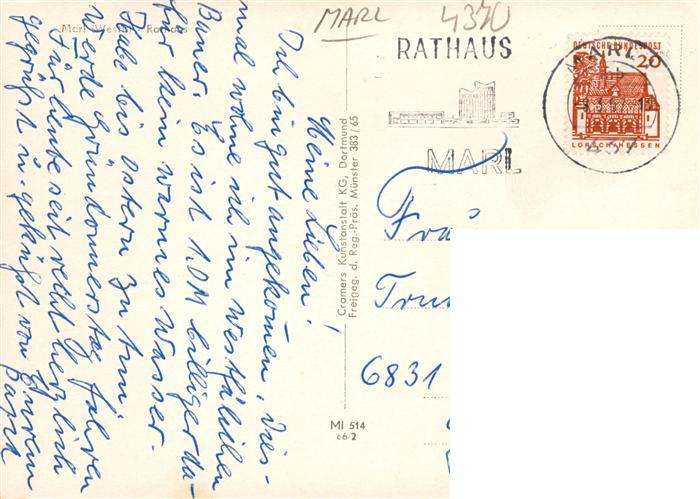 Marl (Westf.) Rathaus
MARL 4370
RATHAUS
MARL
MARL
437
DEUTSCHE BUNDESPOST
20
LORSCH/HESSEN
Meine Lieben!
Ich bin gut angekommen, dies-
mal wohne ich im Westfälischen
Bauer. Es ist 1.DM billiger da-
für kein warmes Wasser.
Habe bis Ostern zu tun
Werde Gründonnerstag fahren
Für heute seit recht herzlich
gegrüßt u. geküßt von Eurem
Cramers Kunstanstalt KG, Dortmund
Freigeg. d. Reg.-Präs. Münster 383/65
MI 514
66/2
6831